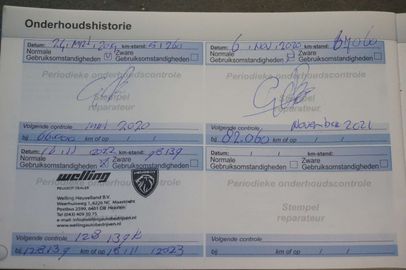 Onderhoudshistorie
Datum: 24 MEI 2019 km-stand: 51260
Normale Gebruiksomstandigheden
Zware Gebruiksomstandigheden
Periodieke onderhoudscontrole
Stempel reparateur
Volgende controle MEI 2020
bij km of op
Datum: 6 Nov. km-stand: 64060
Normale Gebruiksomstandigheden
Zware Gebruiksomstandigheden
Periodieke onderhoudscontrole
Stempel reparateur
Volgende controle November 2021
bij 82.060 km of op
Datum: 18.11 2022 km-stand: 98139
Normale Gebruiksomstandigheden
Zware Gebruiksomstandigheden
welling
PEUGEOT DEALER
Welling Heuvelland B.V.
Postbus 2599, 6401 DB Heerlen
Tel (043) 409 30 75
Volgende controle 128 139 k
bij 128139 km of op 18/11/2023
Datum: km-stand:
Normale Gebruiksomstandigheden
Zware Gebruiksomstandigheden
Periodieke onderhoudscontrole
Stempel reparateur
Volgende controle
bij km of op